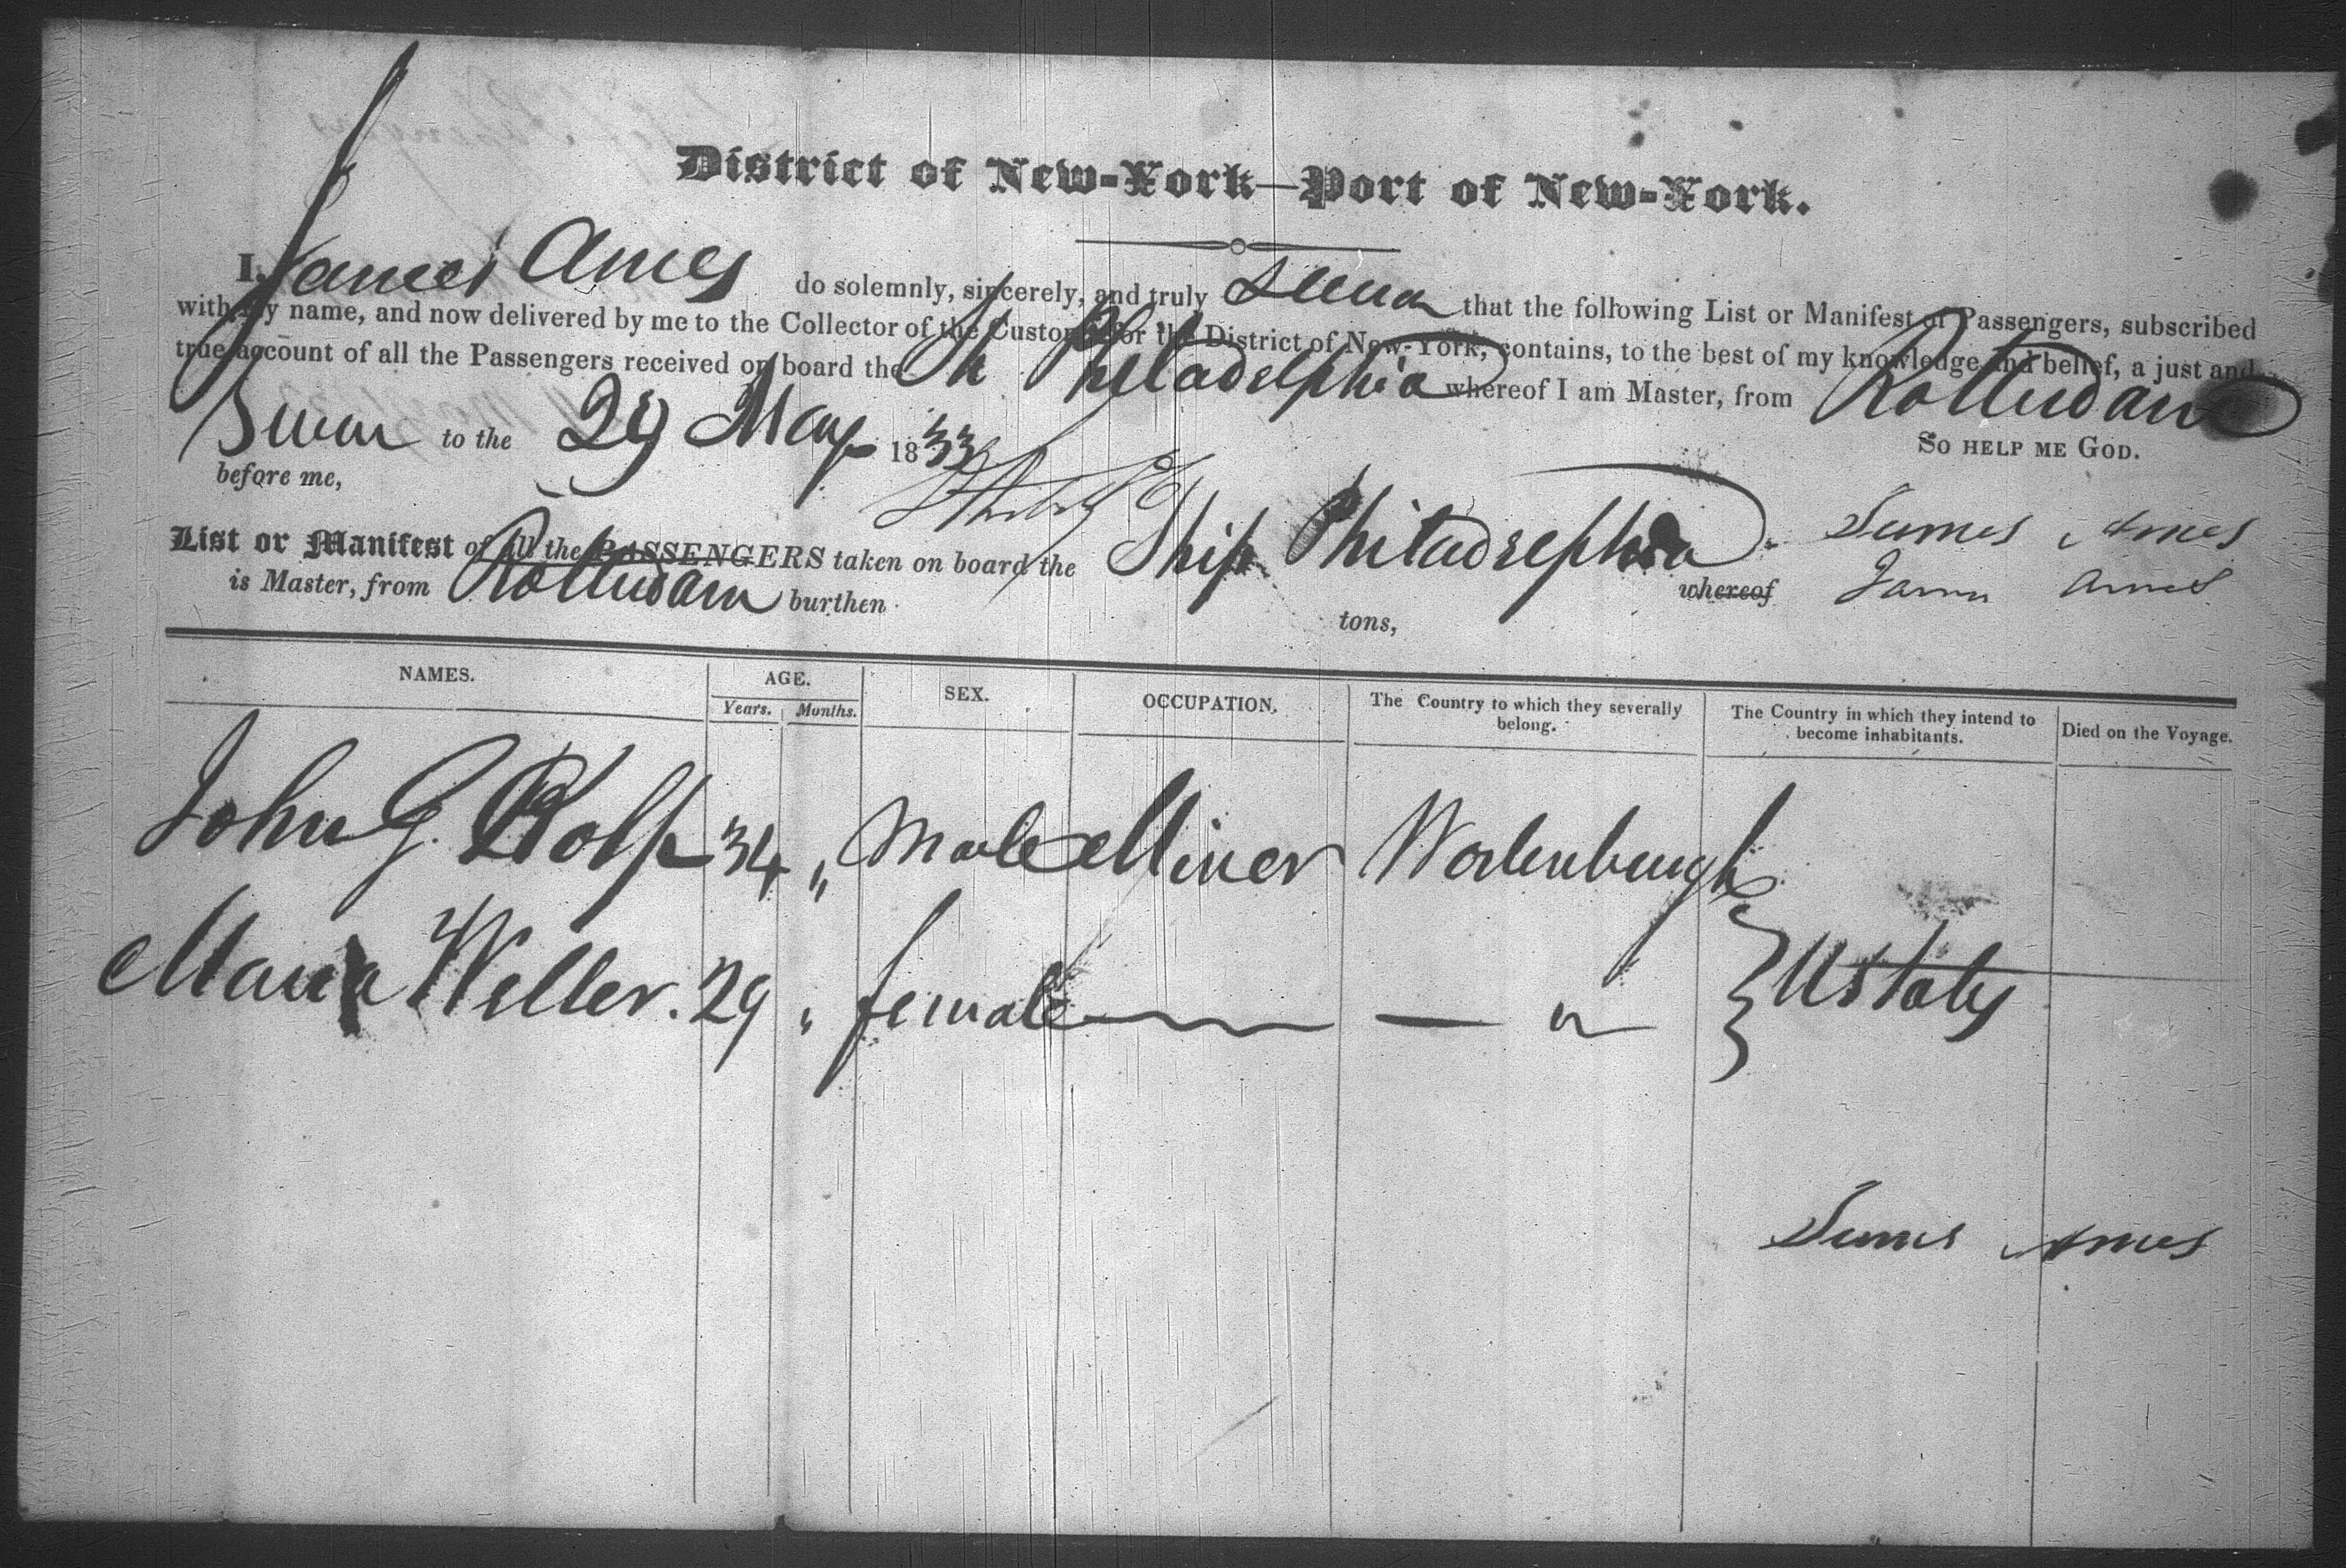 District of New-York—Port of New-York.
I, James Ames do solemnly, sincerely, and truly swear that the following List or Manifest of Passengers, subscribed
with my name, and now delivered by me to the Collector of the Customs for the District of New-York, contains, to the best of my knowledge and belief, a just and
true account of all the Passengers received on board the Sh Philadelphia whereof I am Master, from Rotterdam
Sworn to the 29 May 1833 SO HELP ME GOD.
before me,
James Ames
List or Manifest of all the PASSENGERS taken on board the Ship Philadelphia whereof James Ames
is Master, from Rotterdam burthen tons,
NAMES. AGE. SEX. OCCUPATION. The Country to which they severally belong. The Country in which they intend to become inhabitants. Died on the Voyage.
Years. Months.
John G. Rolf 34 " Male Miner
Maria Weller. 29 " female — " U States
James Ames